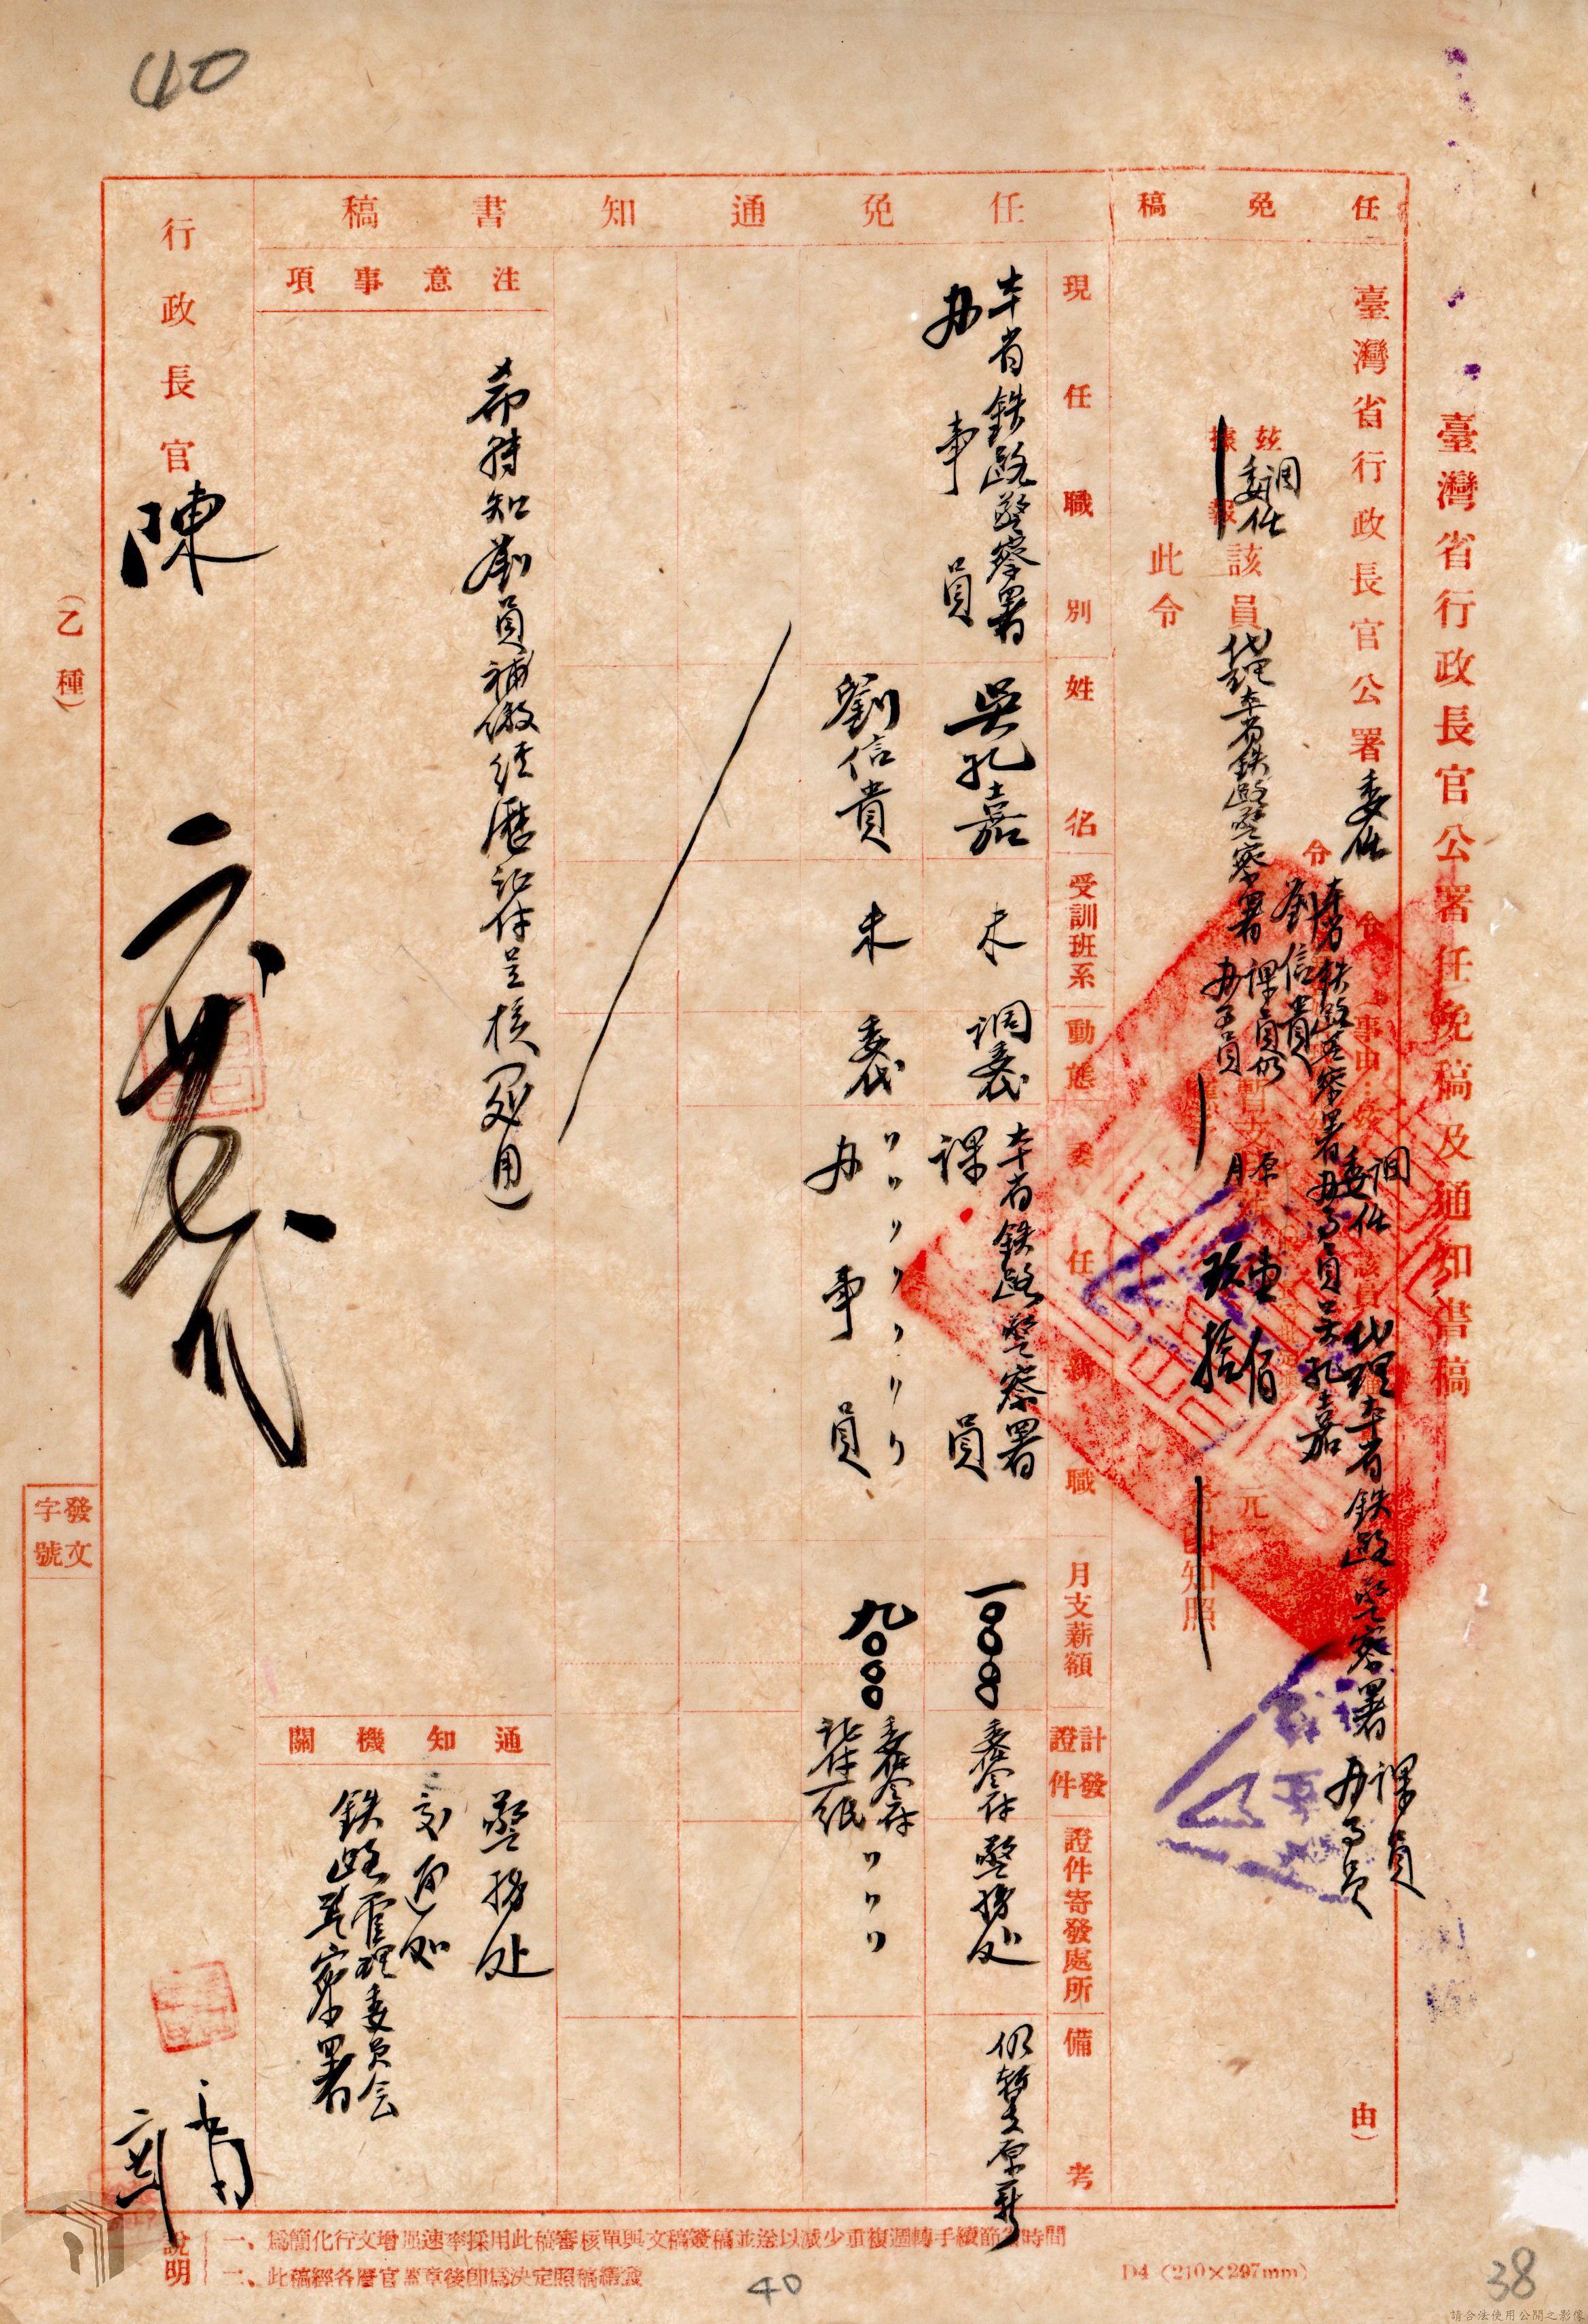 40
臺灣省行政長官公署任免稿及通知書稿
任免稿
臺灣省行政長官公署委任令（事由：
調委任該員代理本省鉄路警察署課員办事員
由）
令本省鉄路警察署办事員吳孔嘉
劉信貴
茲調委任該員代理本省鉄路警察署課員仍办事員暫支原月薪壹佰玖拾元
據報
希即知照
此令
任免通知書稿
現任職別
姓名
受訓班系
動態
委任新職
月支薪額
計發證件
證件寄發處所
備考
本省鉄路警察署办事員
吳孔嘉
未
調委代
本省鉄路警察署課員
一〇〇〇〇
委任令一件
警務处
仍暫支原薪
劉信貴
未
委代
〃〃〃〃〃〃〃办事員
九〇〇〇
委任令一件
証件一紙
〃〃〃
注意事項
希轉知劉員補繳經歷証件呈核
通知機關
警務处
交通处
鉄路管理委員会
鉄路警察署
行政長官
陳
（乙種）
發文字號
說明
一、為簡化行文增加速率採用此稿審核單與文稿簽稿並送以減少重複週轉手續節省時間
二、此稿經各層官蓋章後卽為決定照稿繕發
D4（210×297mm）
40
38
請合法使用公開之影像